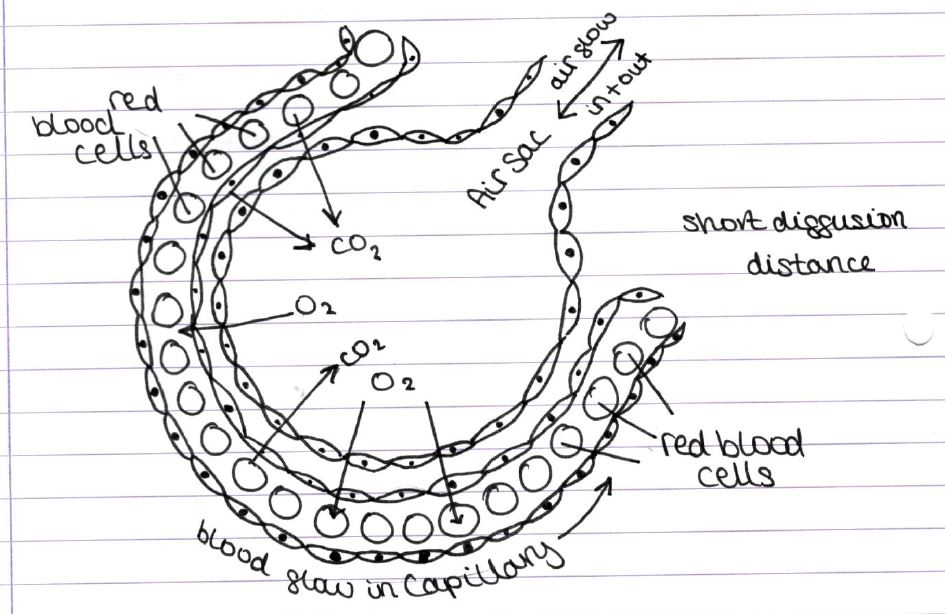 red
blood
cells
air flow
in + out
Air sac
short diffusion
distance
CO2
O2
CO2
O2
red blood
cells
blood flow in capillary